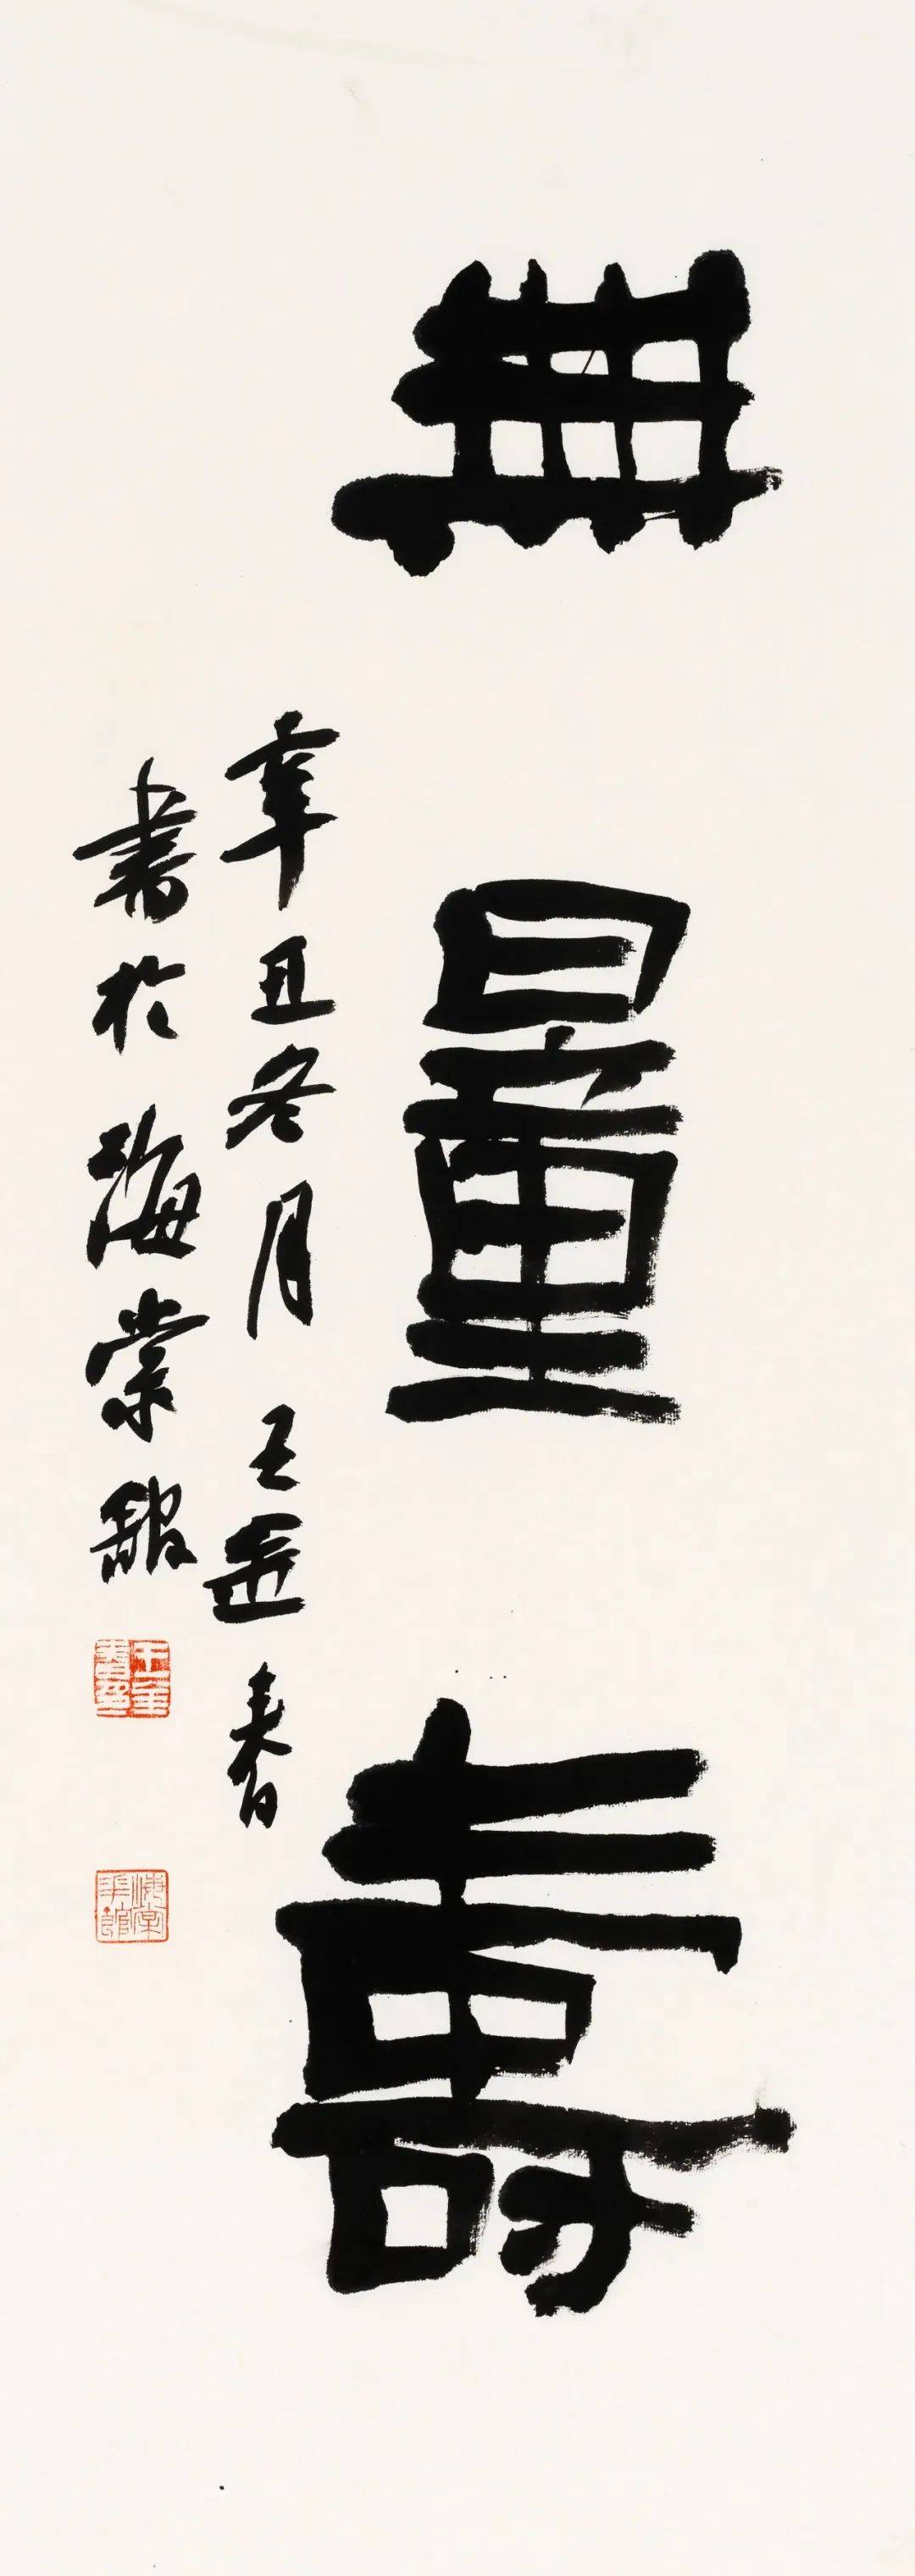 無量壽
辛丑冬月 王金春
書於海棠館
王金春印
海棠華館